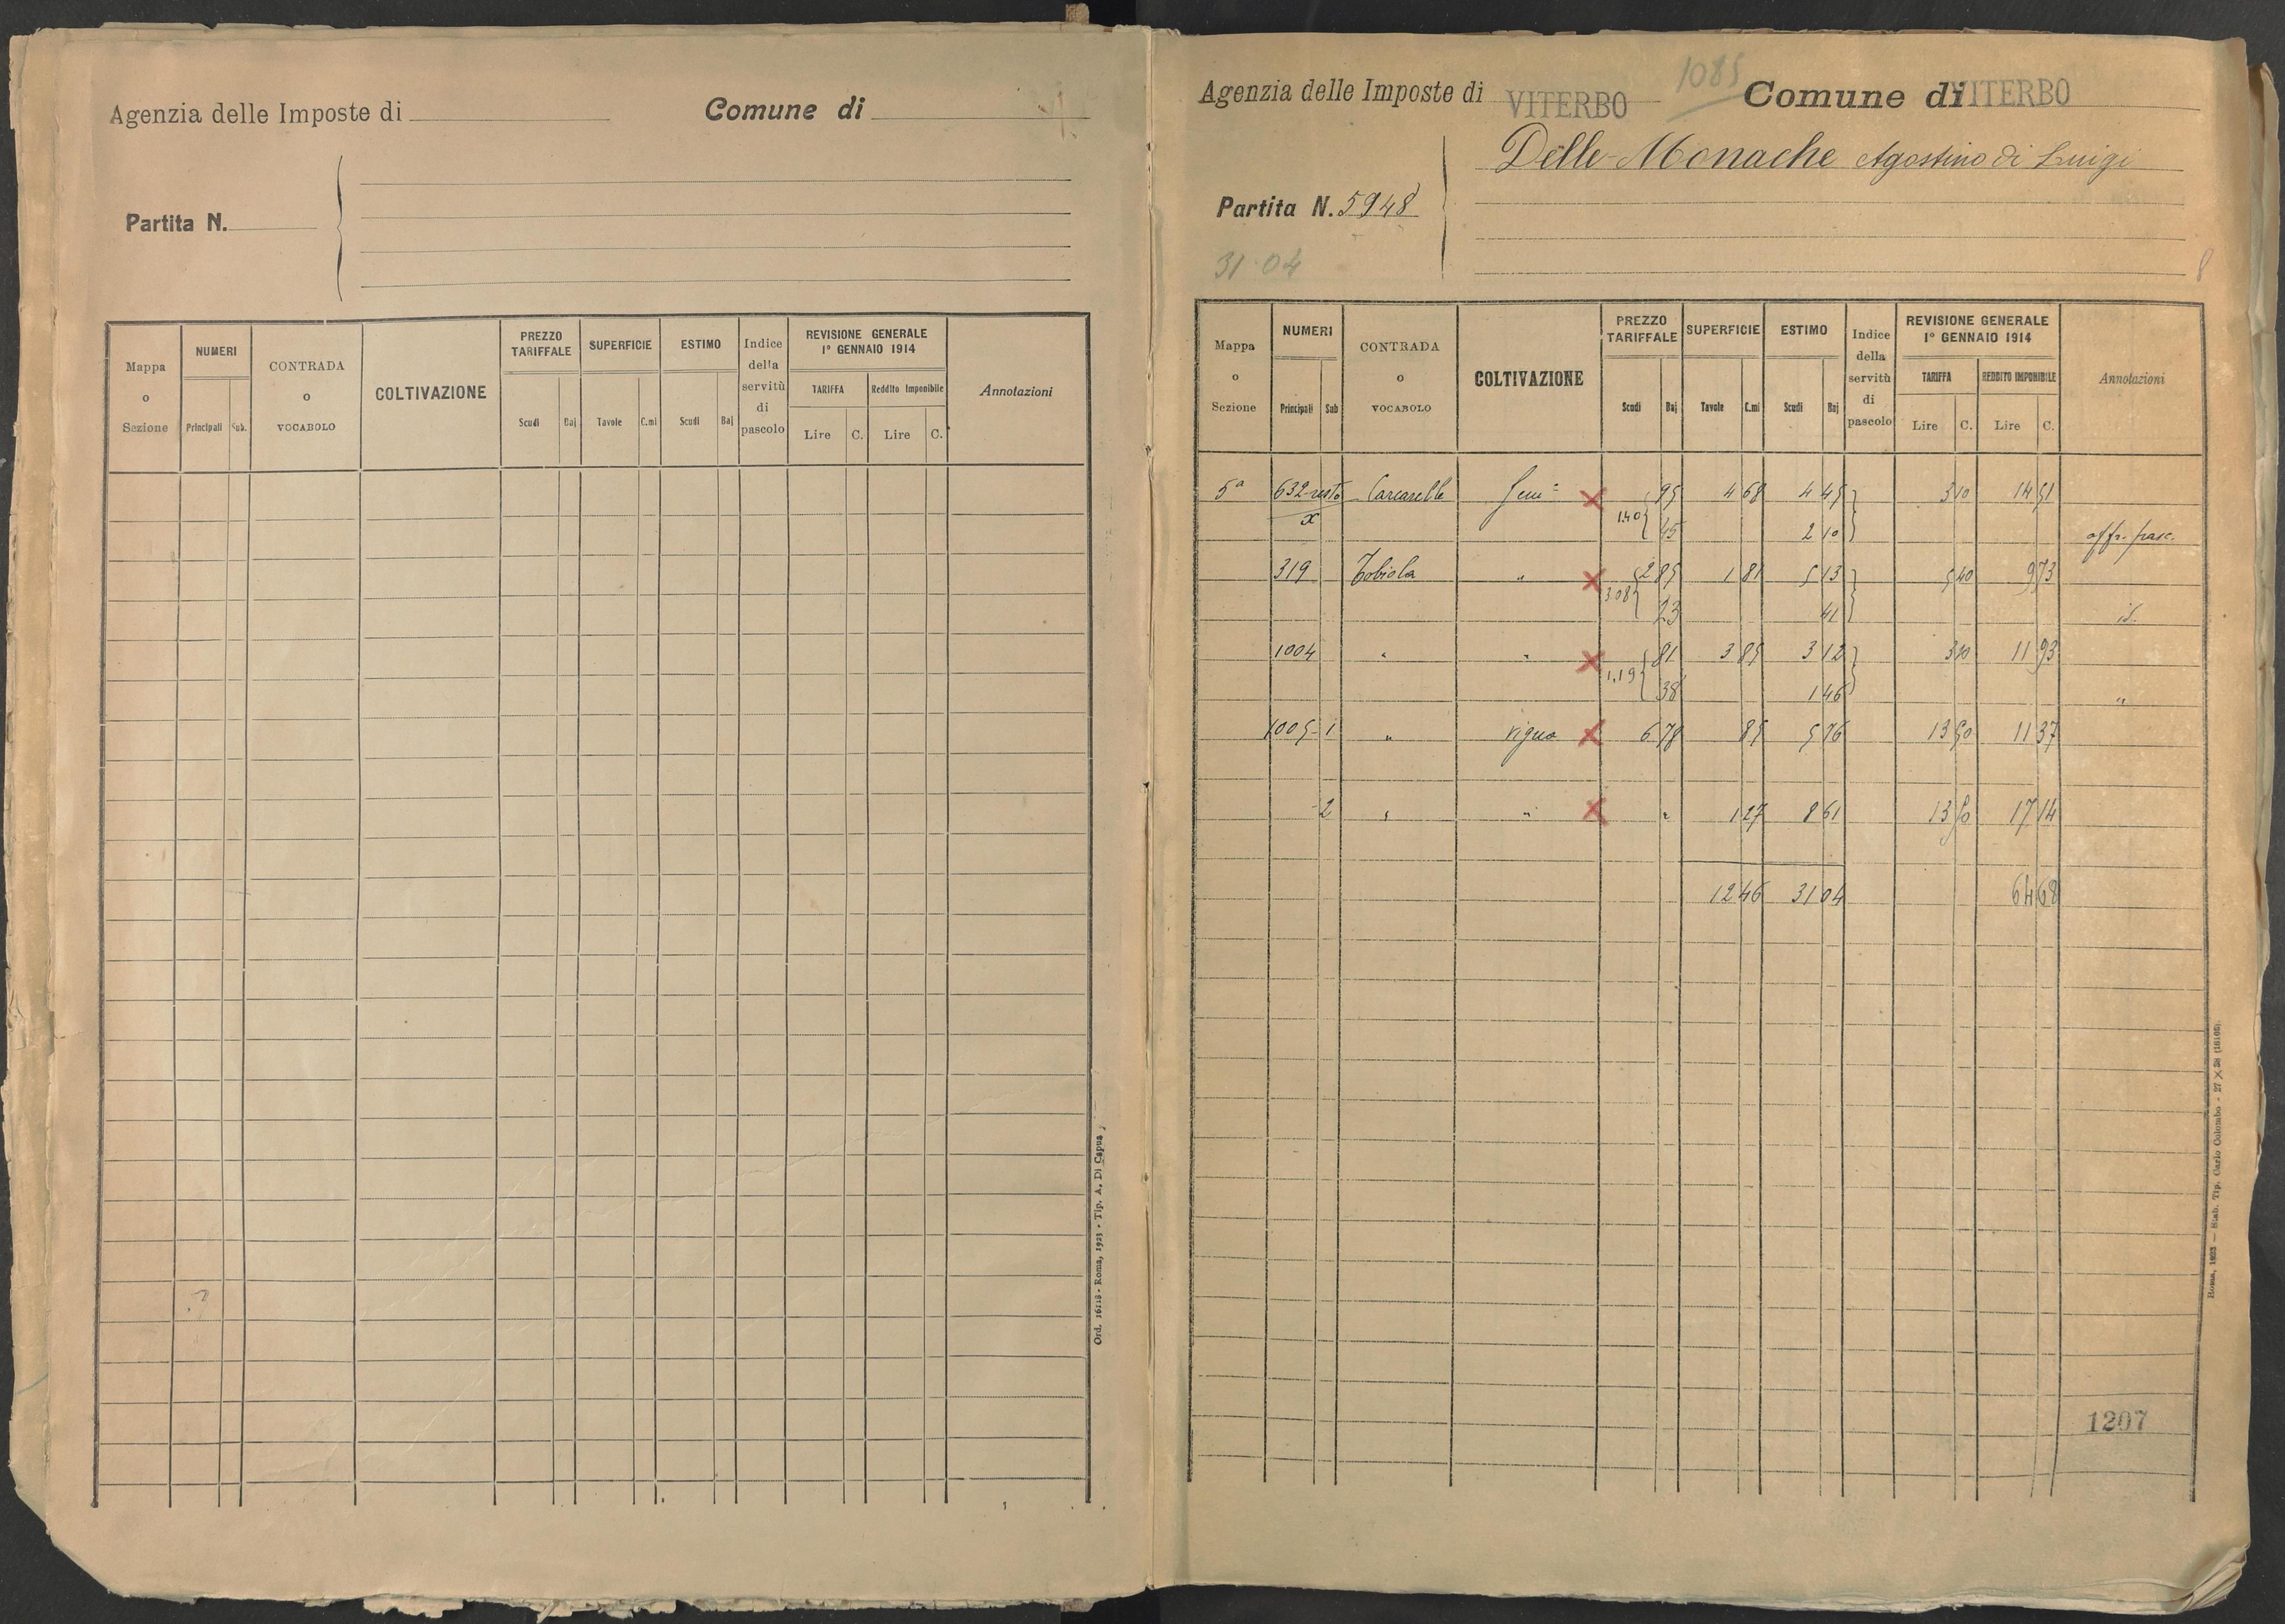 Agenzia delle Imposte di Comune di
Partita N.
Mappa o Sezione NUMERI Principali Sub. CONTRADA o VOCABOLO COLTIVAZIONE PREZZO TARIFFALE Scudi Baj SUPERFICIE Tavole C.mi ESTIMO Scudi Baj Indice della servitù di pascolo REVISIONE GENERALE 1° GENNAIO 1914 TARIFFA Lire C. Reddito Imponibile Lire C. Annotazioni
Ord. 16118 - Roma, 1923 - Tip. A. Di Capua
1085
Agenzia delle Imposte di VITERBO Comune di VITERBO
Delle Monache Agostino di Luigi
Partita N. 5948
31.04
8
Mappa o Sezione NUMERI Principali Sub CONTRADA o VOCABOLO COLTIVAZIONE PREZZO TARIFFALE Scudi Baj SUPERFICIE Tavole C.mi ESTIMO Scudi Baj Indice della servitù di pascolo REVISIONE GENERALE 1° GENNAIO 1914 TARIFFA Lire C. REDDITO IMPONIBILE Lire C. Annotazioni
5a 632 resto Carcarelle Semi x 95 4 68 4 45 3 10 14 51
x 1.40 45 2 10 affr. pasc.
319 Tobiola " x 2 85 1 81 5 13 5 40 9 73
3.08 23 41 id.
1004 " " x 81 3 85 3 12 3 10 11 93
1.19 38 1 46 "
1005 1 " vigna x 6 78 85 5 76 13 50 11 37
-2 " " x " 1 27 8 61 13 50 17 14
12 46 31 04 64 68
1207
Roma, 1923 — Stab. Tip. Carlo Colombo - 27 X 38 (16108)